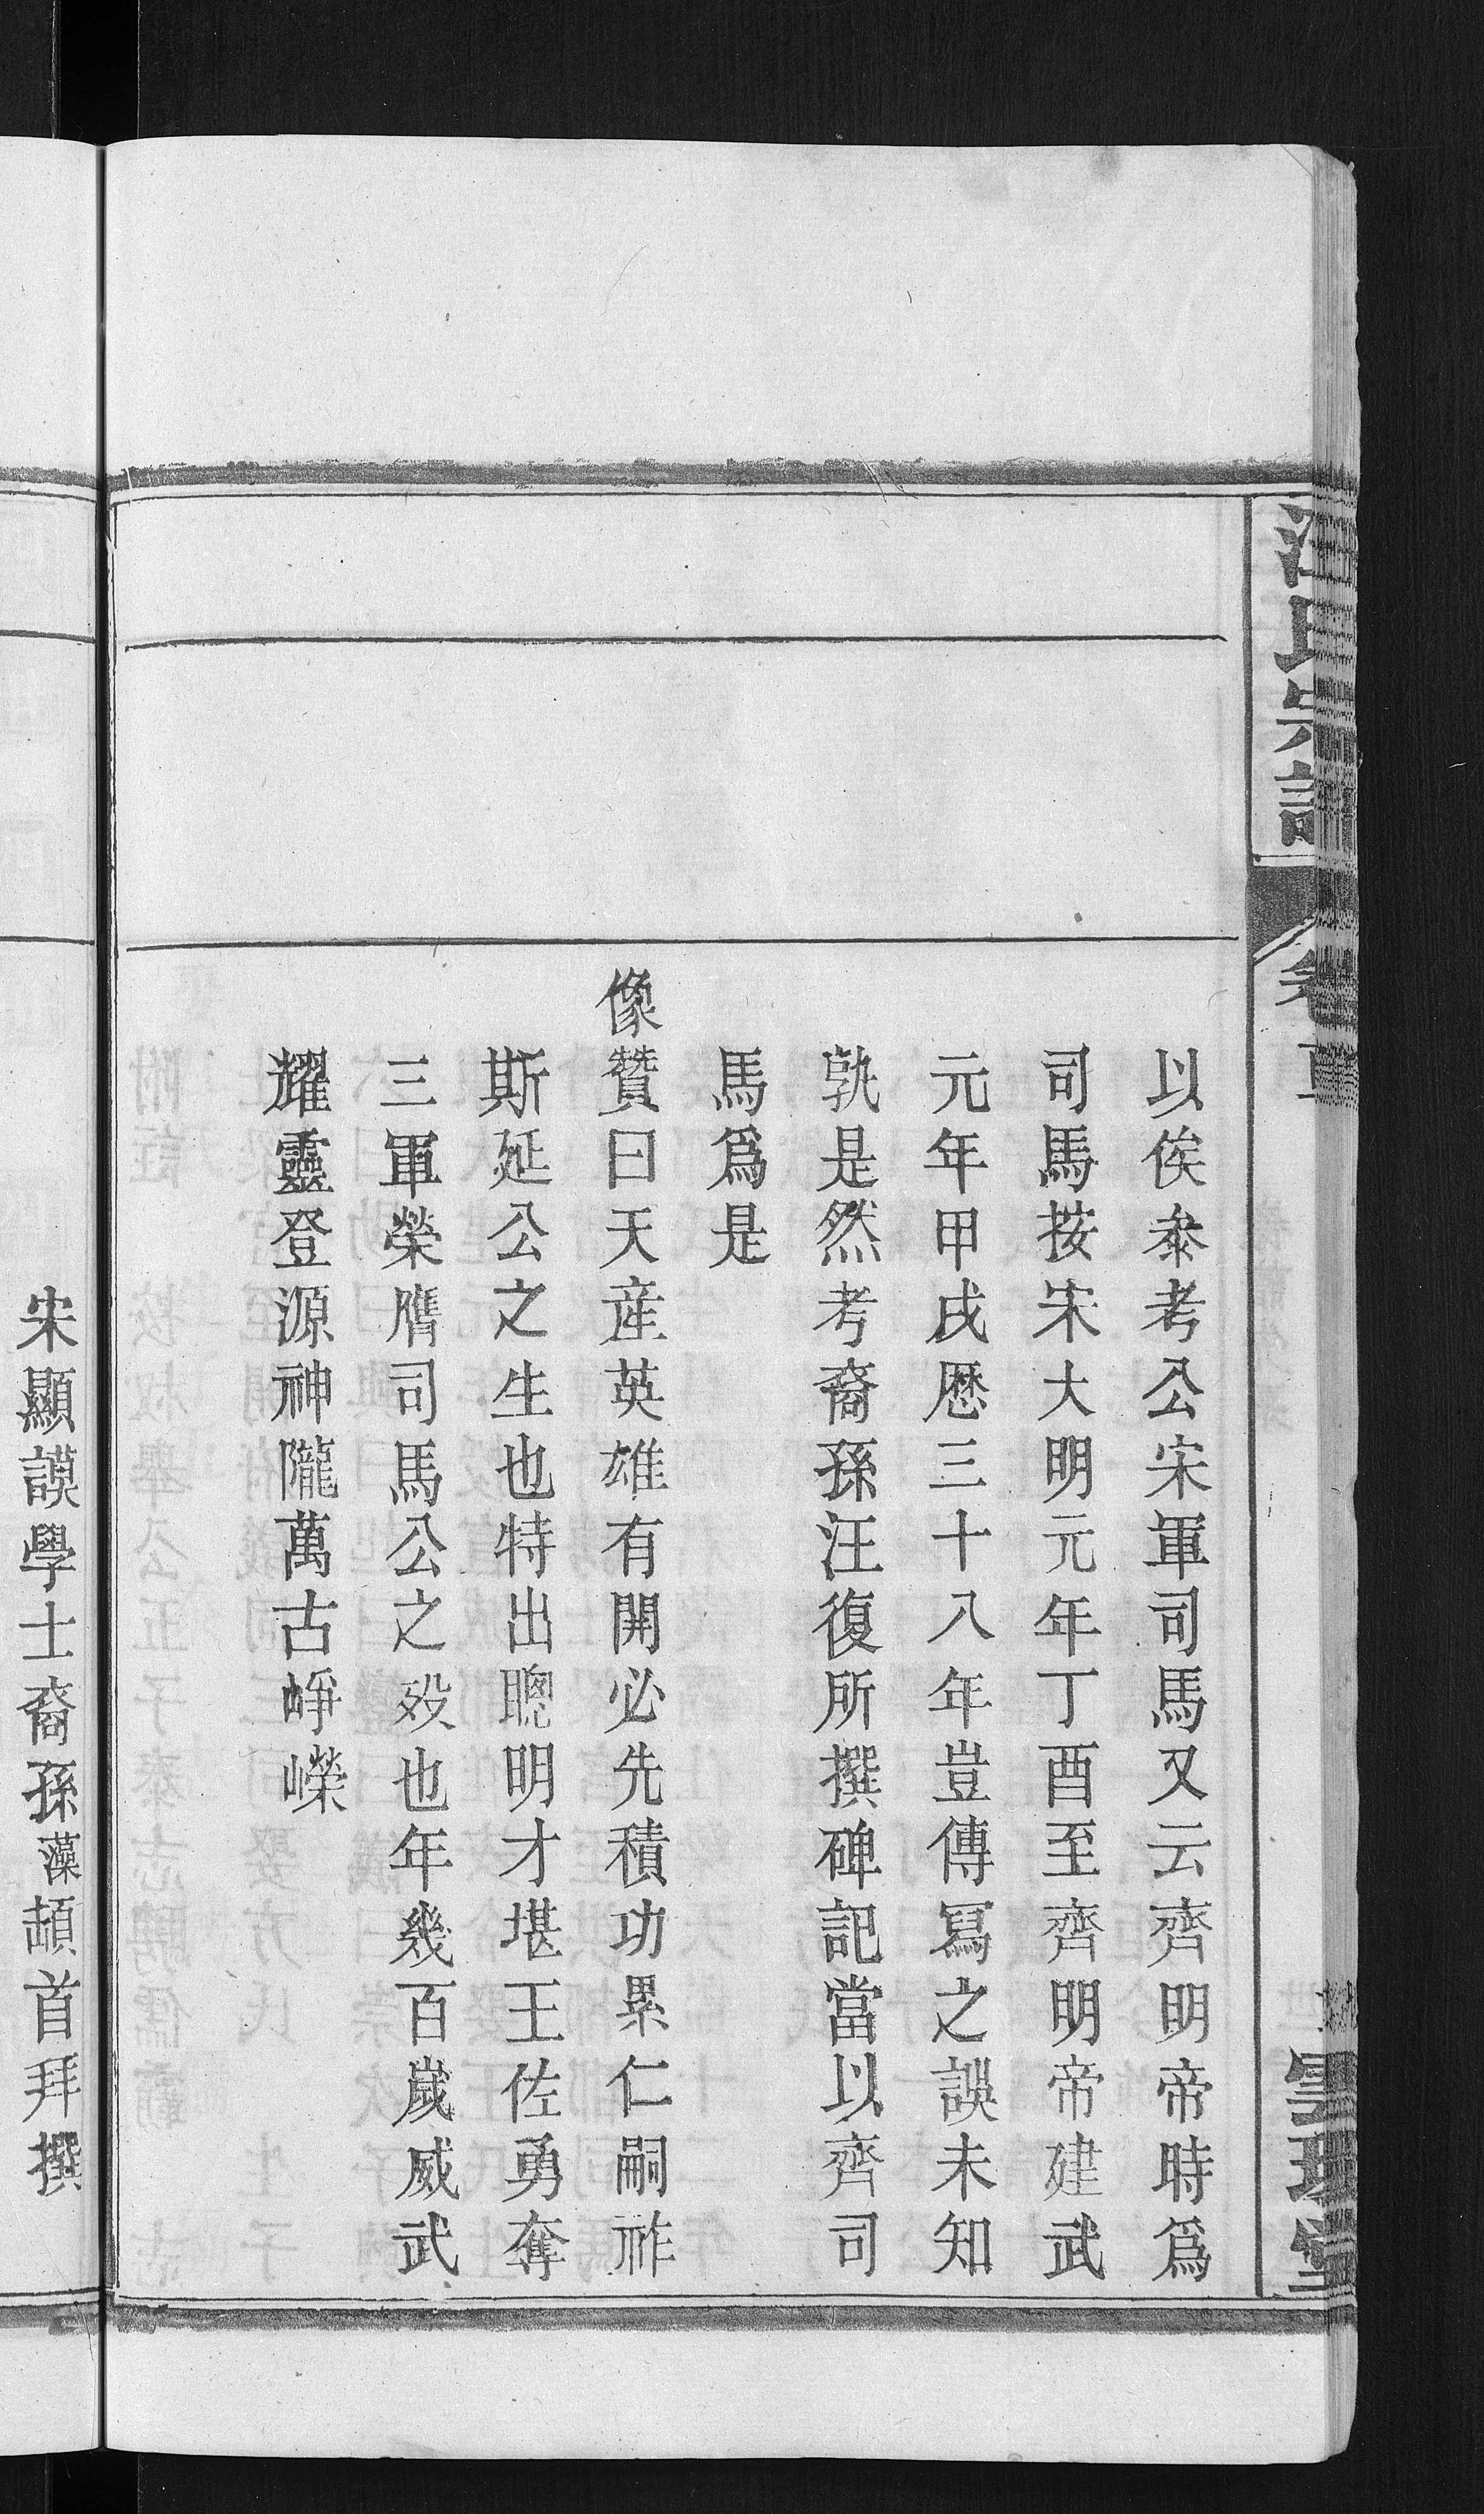 汪氏宗譜
以俟叅考公宋軍司馬又云齊明帝時爲
司馬按宋大明元年丁酉至齊明帝建武
元年甲戌歷三十八年豈傳寫之誤未知
孰是然考裔孫汪復所撰碑記當以齊司
馬爲是
像贊曰天産英雄有開必先積功累仁嗣祚
斯延公之生也特出聰明才堪王佐勇奪
三軍榮膺司馬公之歿也年幾百歲威武
耀靈登源神隴萬古崢嶸
宋顯謨學士裔孫藻頓首拜撰